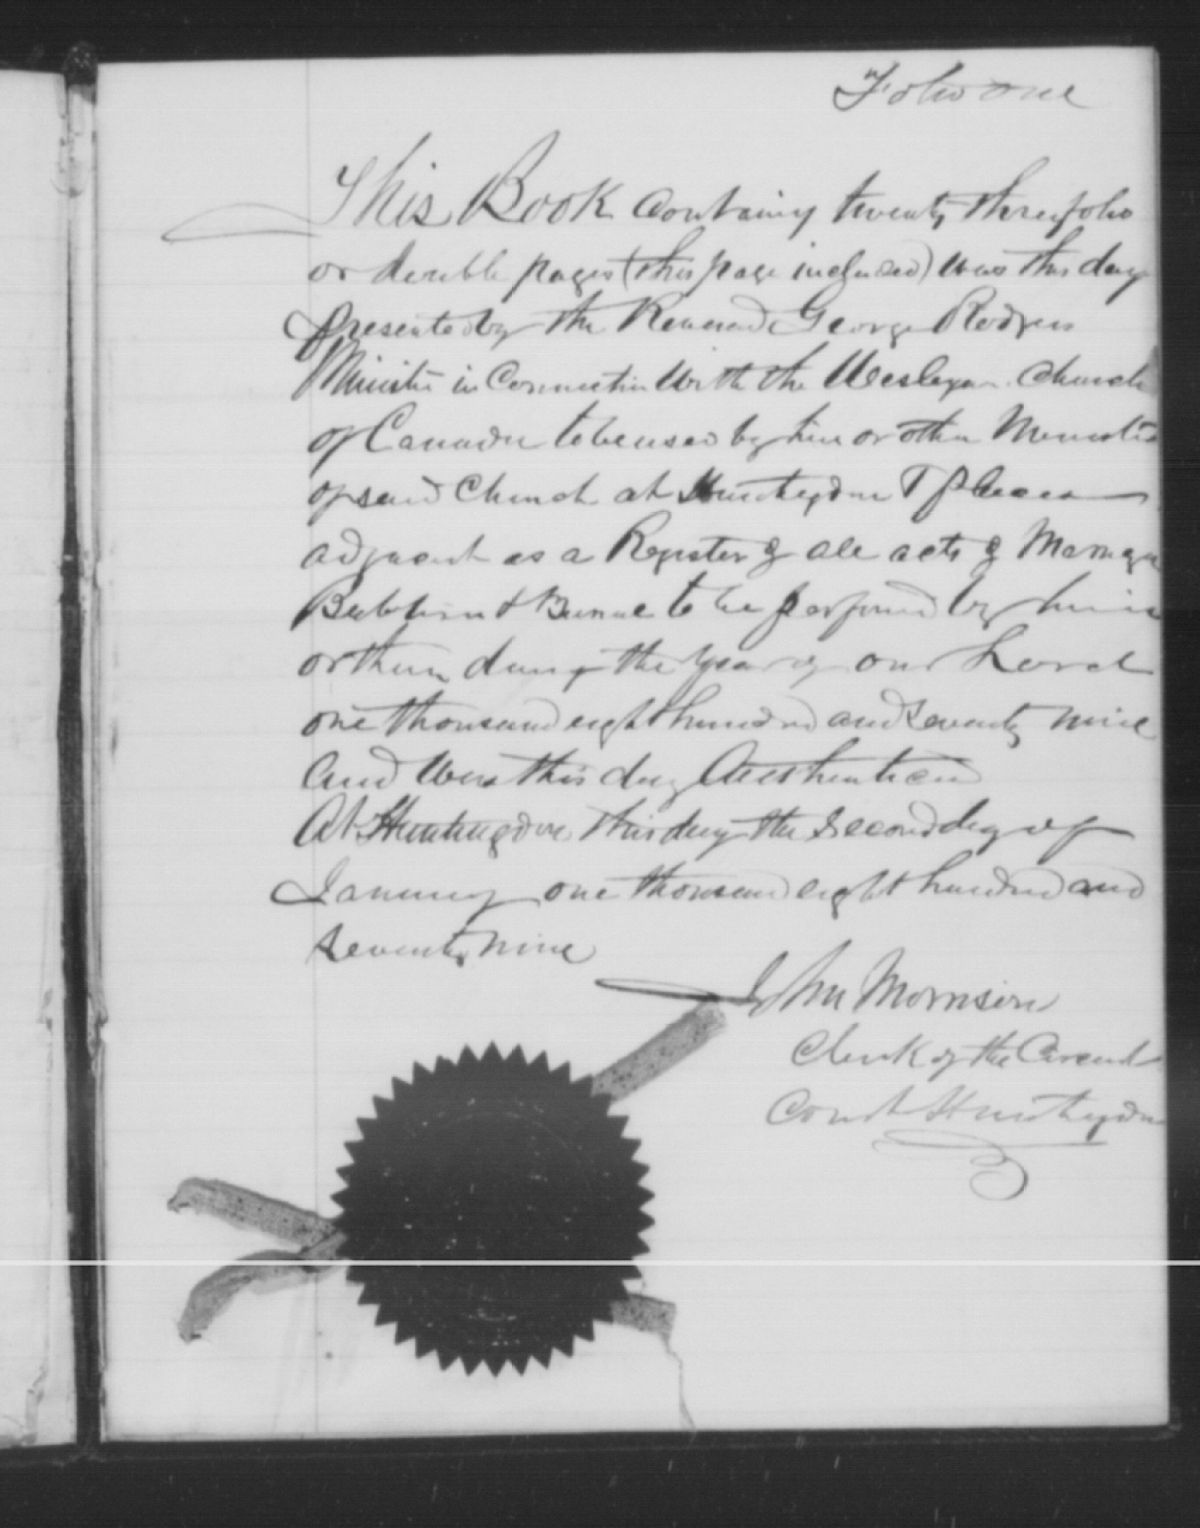 Folio one
This Book containing twenty three folio
or double pages (this page included) was this day
presented by the Reverend George Rodgers
Minister in Connection With the Wesleyan Church
of Canada to be used by him or other Minister
of said Church at Huntingdon & places
adjacent as a Register of all acts of Marriage
Baptism & Burial to be performed by him
or them during the year of our Lord
one thousand eight hundred and seventy nine
and was this day Authenticated
At Huntingdon this day the second day of
January one thousand eight hundred and
seventy nine
John Morrison
Clerk of the Circuit
Court Huntingdon